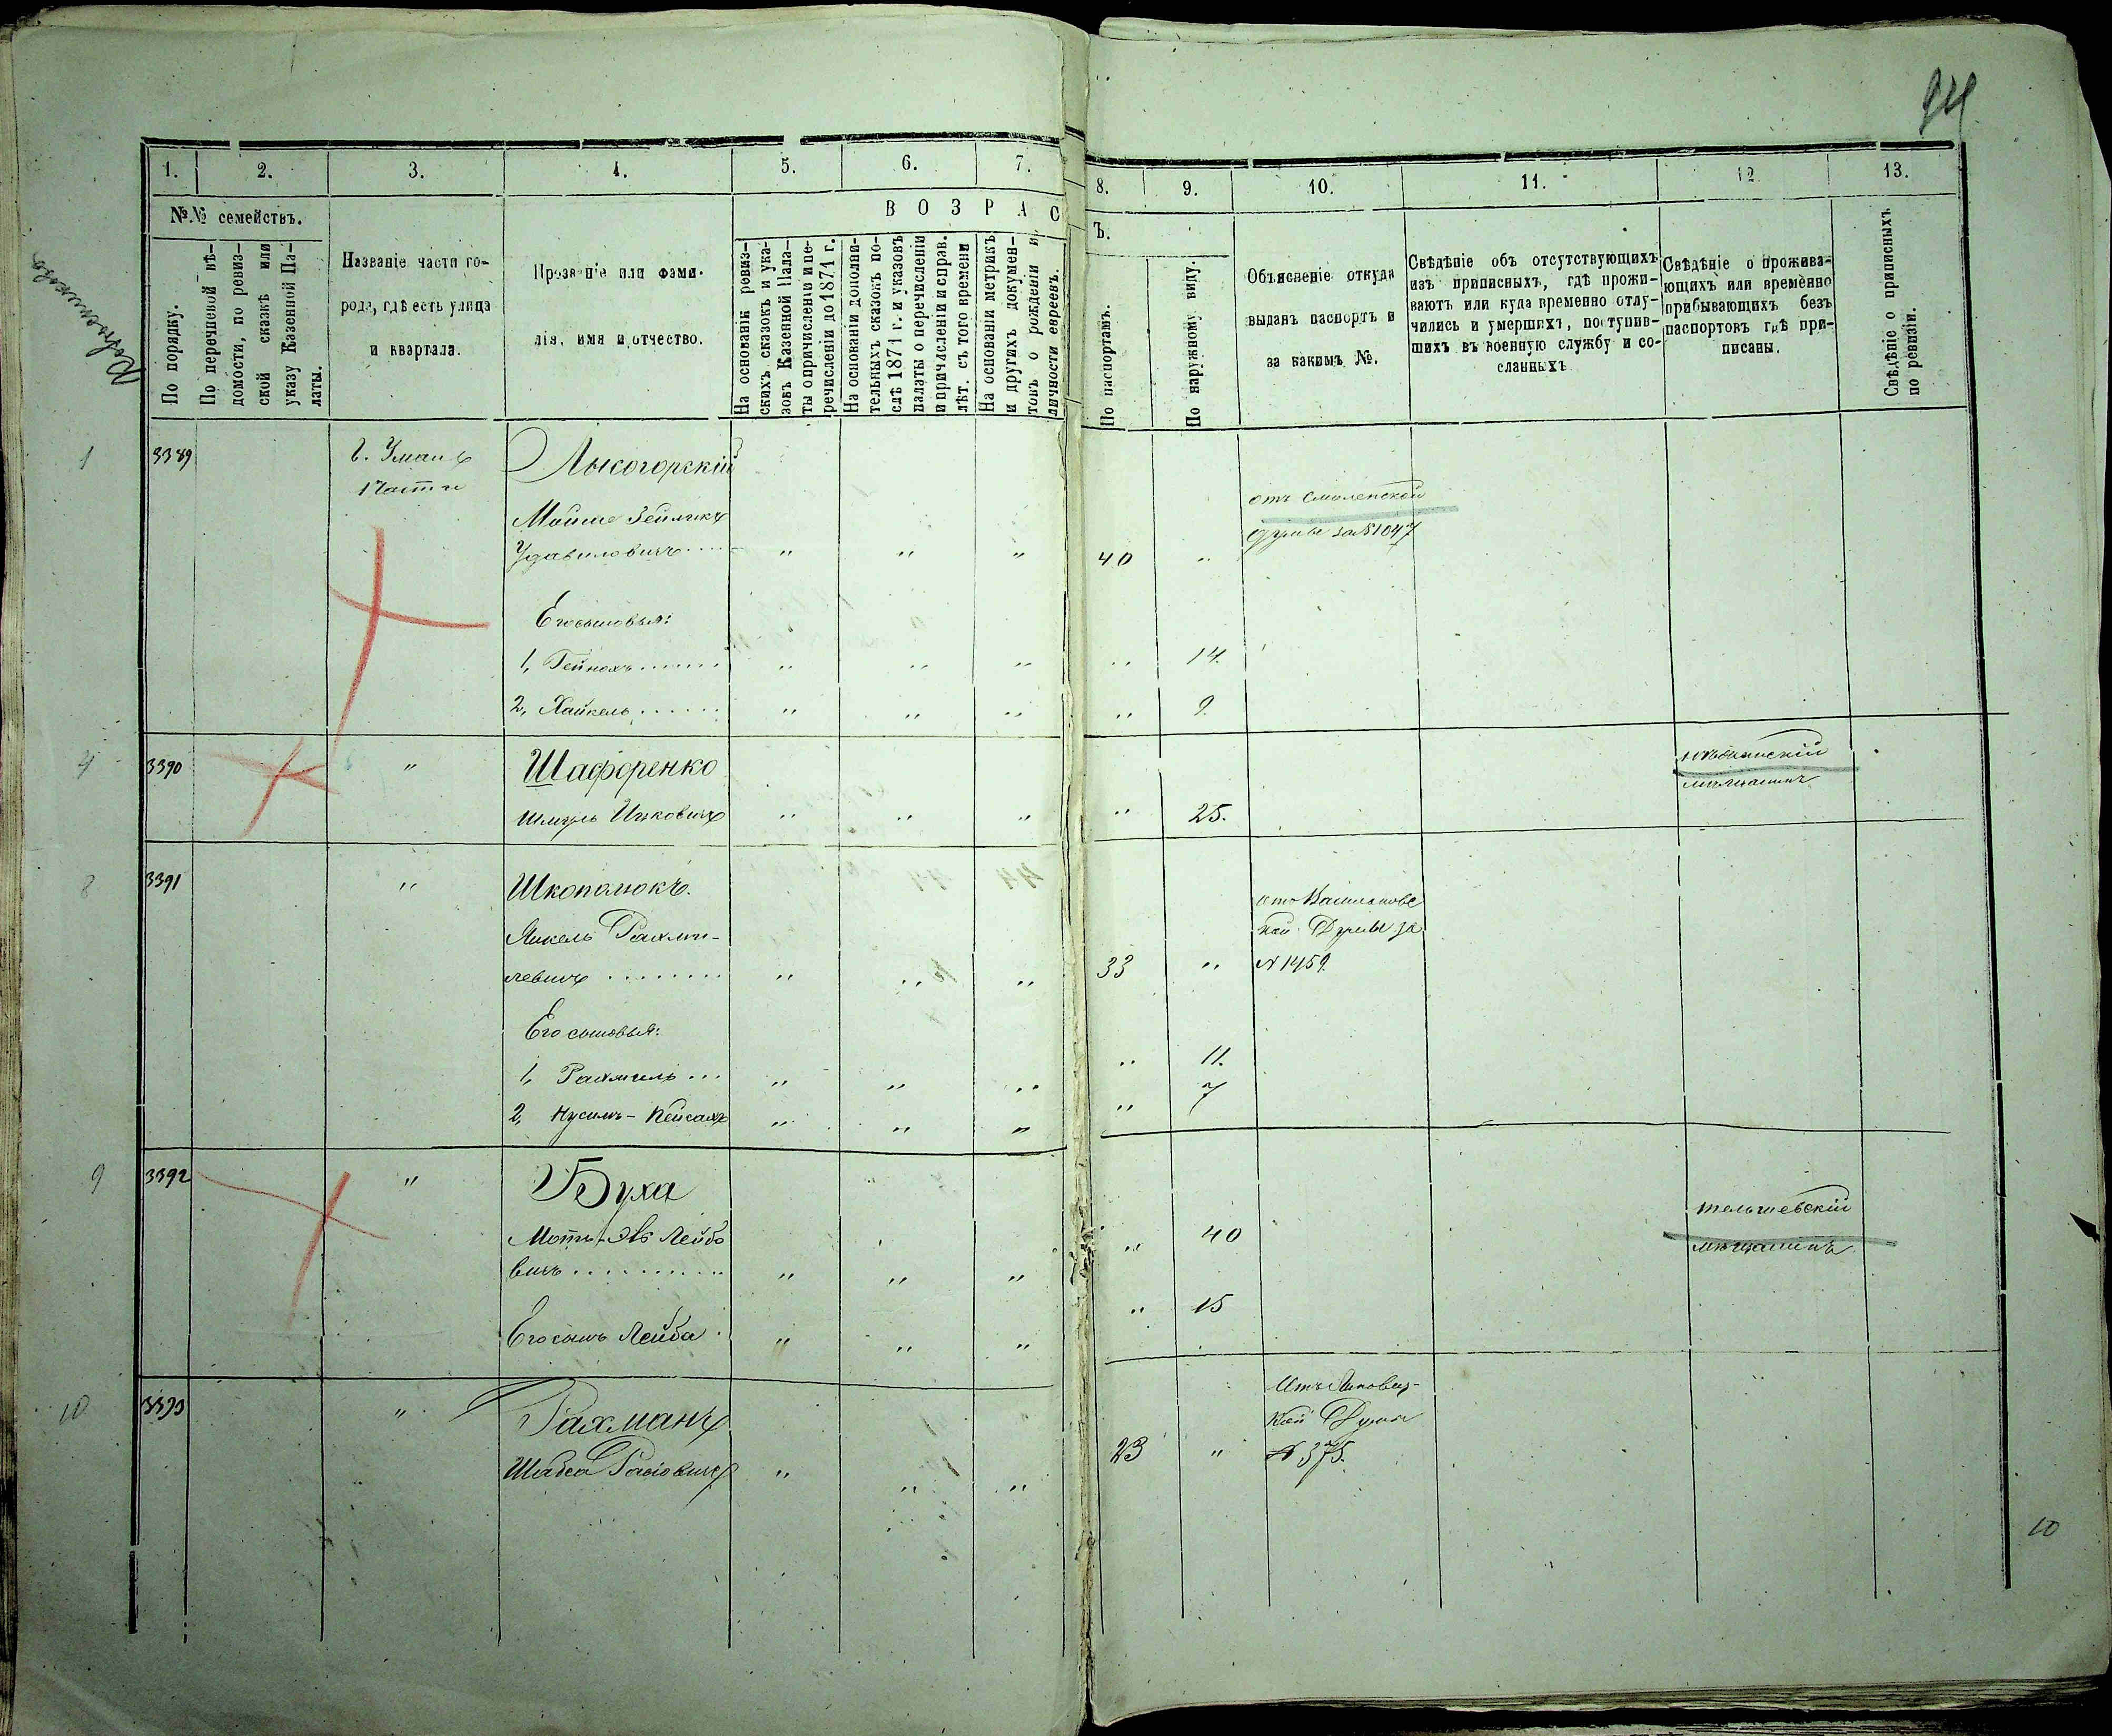 94
1. 2. 3. 4. 5. 6. 7. 8. 9. 10. 11. 12 13.
№№ семействъ.
По порядку.
По перечневой вѣ-
домости, по ревиз-
ской сказкѣ или
указу Казенной Па-
латы.
Названіе части го-
рода, гдѣ есть улица
и квартала.
Прозваніе или фами-
лія, имя и отчество.
ВОЗРАС
Ъ.
На основаніи ревиз-
скихъ сказокъ и ука-
зовъ Казенной Пала-
ты о причисленіи и пе-
речисленіи до 1871 г.
На основаніи дополни-
тельныхъ сказокъ по-
слѣ 1871 г. и указовъ
палаты о перечисленіи
и причисленіи и справ.
лѣт. съ того времени
На основаніи метрикъ
и другихъ докумен-
товъ о рожденіи и
личности евреевъ.
По паспортамъ.
По наружному виду.
Объясненіе откуда
выданъ паспортъ и
за какимъ №.
Свѣдѣніе объ отсутствующихъ
изъ приписныхъ, гдѣ прожи-
ваютъ или куда временно отлу-
чились и умершихъ, поступив-
шихъ въ военную службу и со-
сланныхъ
Свѣдѣніе о прожива-
ющихъ или временно
прибывающихъ безъ
паспортовъ гдѣ при-
писаны.
Свѣдѣніе о приписныхъ
по ревизіи.
1 3389 г. Умань Лысогорскій
1 части
отъ Смоленской
Мойше Зейликъ
думы за №1047
Удавиловичъ.... " " " 40 "
Его сыновья:
1, Гейнохъ....... " " " " 14.
2, Хайкель...... " " " " 9.
4 3390 " Шафоренко
мѣщанинъ
Шмуль Ицковичъ " " " " 25.
8 3391 " Шкополюкъ.
отъ Васильковс
Янкель Рахми-
кой Думы за
левичъ ........ " " " 33 " №1459.
Его сыновья:
1, Рахмиль... " " " " 11.
2, Нусимъ-Пейсахъ " " " " 7
9 3392 " Буха
тельшевскій
Лейбо " 40 мѣщанинъ
вичъ.......... " " "
Его сынъ Лейба. " " " " 15
10 3393 " Рахманъ
Думы
Шабса " " " 23 " №375.
10